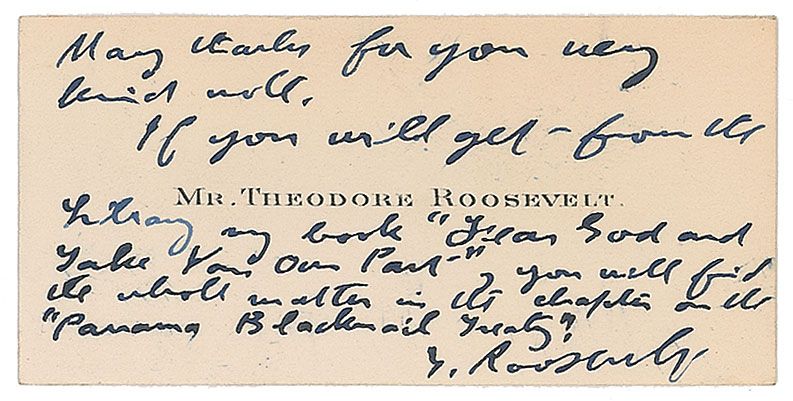 Many thanks for your very
kind note.
If you will get from the
MR. THEODORE ROOSEVELT.
Library my book "Fear God and
Take Your Own Part", you will find
the whole matter in the chapter on the
"Panama Blackmail Treaty".
T. Roosevelt